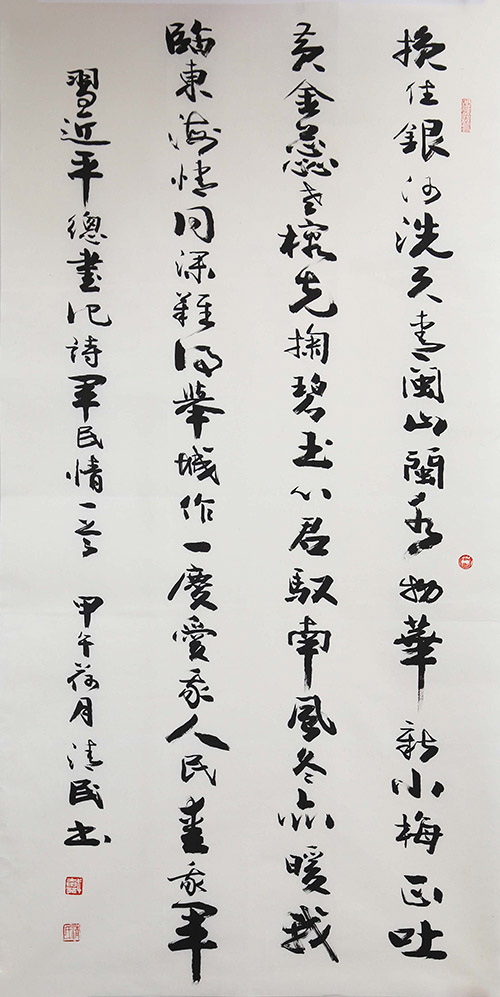 挽住銀河洗天青閩山閩水物華新小梅正吐
黃金蕊老榕先掬碧玉心君馭南風冬亦暖我
臨東海情同深難得舉城作一慶愛我人民愛我軍
習近平總書記詩軍民情一首 甲午荷月清民書